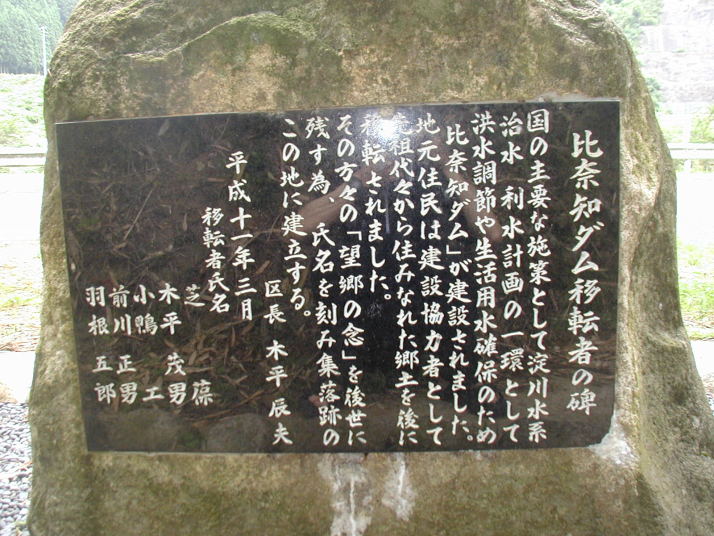 比奈知ダム移転者の碑
国の主要な施策として淀川水系
治水 利水計画の一環として
洪水調節や生活用水確保のため
比奈知ダム」が建設されました。
地元住民は建設協力者として
先祖代々から住みなれた郷土を後に
移転されました。
その方々の「望郷の念」を後世に
残す為、氏名を刻み集落跡の
この地に建立する。
区長 木平 辰夫
平成十一年三月
移転者氏名
芝
木平 茂男
小鴨 工
前川 正男
羽根 五郎